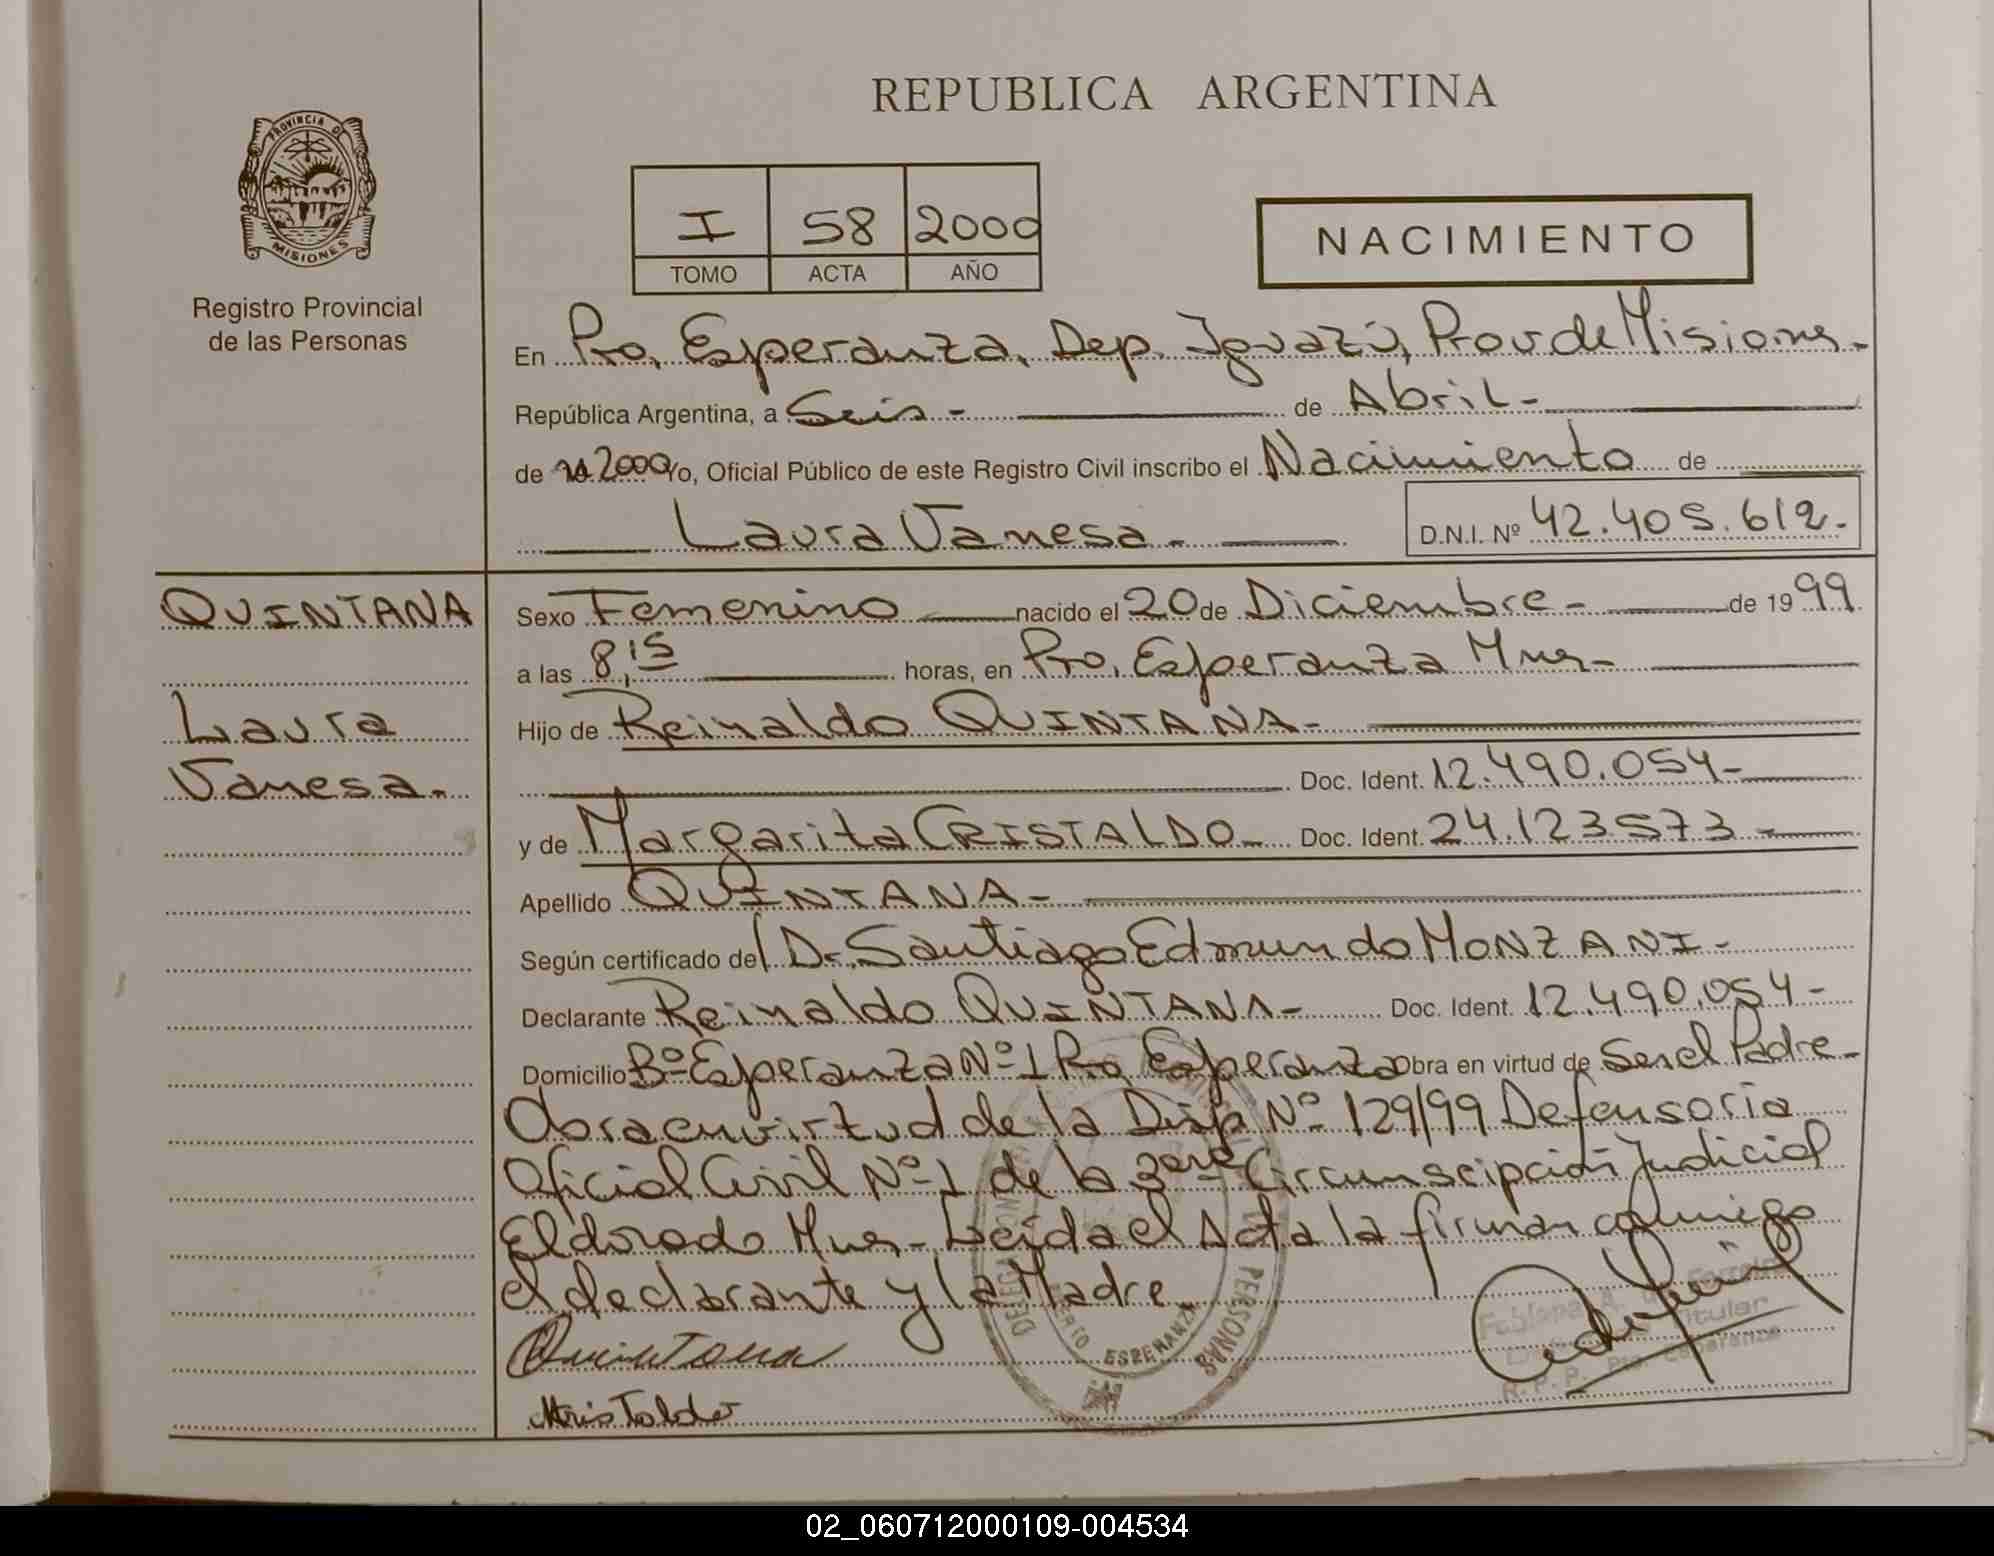 REPUBLICA ARGENTINA
PROVINCIA DE
MISIONES
Registro Provincial
de las Personas
I 58 2000
TOMO ACTA AÑO
NACIMIENTO
En Pto. Esperanza, Dep. Iguazú, Prov de Misiones.-
República Argentina, a Seis - de Abril -
de 2000 yo, Oficial Público de este Registro Civil inscribo el Nacimiento de
Laura Vanesa -
D.N.I. Nº 42.405.612.-
QUINTANA
Laura
Vanesa.
Sexo Femenino nacido el 20 de Diciembre - de 1999
a las 8,15 horas, en Pto. Esperanza Mnes-
Hijo de Reinaldo QUINTANA -
Doc. Ident. 12.490.054-
y de Margarita CRISTALDO - Doc. Ident. 24.123.573 -
Apellido QUINTANA -
Según certificado del Dr. Santiago Edmundo MONZANI -
Declarante Reinaldo QUINTANA - Doc. Ident. 12.490.054 -
Domicilio Bº Esperanza Nº 1 Pto Esperanza Obra en virtud de Ser el Padre -
Obra en virtud de la Disp Nº 129/99 Defensoria
Oficial Civil Nº 1 de la 3era Circunscipción Judicial
Eldorado Mnes- Leida el Acta la firman conmigo
el declarante y la Madre.
Quintana
PERSONAS
PUERTO ESPERANZA
Titular
R. P. P. Pto. Esperanza
02_060712000109-004534